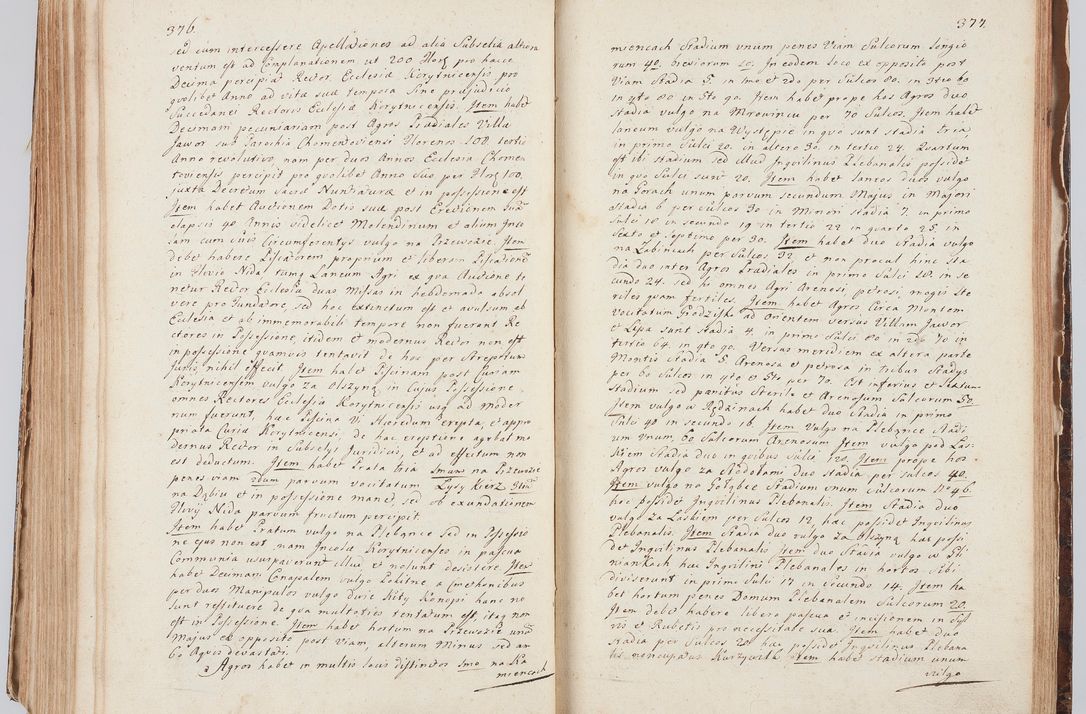 376.
sed cum intercessere Apellationes ad alia Subselia altiora
ventum est ad Complanationem ut 200 Flor: pro hacce
Decima percipiat Rector Ecclesiæ Korytnicensis pro
quolibet Anno ad vitæ suæ tempora sine præjudicio
Succedanei Rectoris Eclesiæ Korytnicensis. Item habet
Decimam pecuniariam post Agros Prædiales Villæ
Jawor sub Parochia Chomentoviensi Florenos 100 tertio
Anno revolutivo, nam per duos Annos Ecclesia Chomen
toviensis percipit pro quolibet Anno suo per Flor: 100.
juxta Decretum Sacræ Nuntiaturæ et in possessione est
Item habet Auctionem Dotis suæ post Erectionem
elapsis 40 Annis videlicet Molendinum et alium
sam cum suis Circumferentys vulgo na Przewozie. Item
debet habere Piscatorem proprium et liberam Piscationem
in Fluvio Nida, tum Laneum Agri ex qua Auctione te
netur Rector Ecclesiæ duas Missas in hebdomada absol
vere pro Fundatore, sed hoc extinctum est et avulsum ab
Ecclesia et ab immemorabili tempore non fuerunt Re
ctores in Possessione, itidem et modernus Rector non est
in possessione quamvis tentavit de hoc per Strepitum
Juris, nihil effecit. Item habet Piscinam post Curiam
Korytnicensem vulgo za Olszyną, in Cujus Possessione
omnes Rectores Ecclesiæ Korytnicensis usq ad Moder
num fuerunt, hæc Piscina Vi Hæredum erepta, et appro
priata Curiæ Korytnicensi, de hac ereptione agebat mo
dernus Rector in Subselys Juridicis, et ad effectum non
est deductum. Item habet Prata tria 1mum na Przewozie
penes viam 2dum parvum vocitatum Łysy Kierz 3tium
na Dąbiu et in possessione manet, sed ob exundationem
Fluvij Nida parvum fructum percipit.
Item habet Pratum vulgo na Plebąnce sed in Possessio
ne ejus non est, nam Incolæ Korytnicenses in pascua
Communia usurpaverunt illud et nolunt desistere. Item
habet Decimam Canapalem vulgo Sobitne a Cmethonibus
per duos Manipulos vulgo dwie Kity Konopi hanc no
lunt restituere de qua multoties tentatum est, itaq non
est in Possessione. Item habet hortum na Przewozie unum
Majus ex opposito post Viam, alterum Minus sed am
bo Aquis devastati.
Agros habet in multis locis distinctos 1mo na Ka
miencach
377.
miencach Stadium unum penes Viam Sulcorum longio
rum 40. breviorum 20. In eodem loco ex opposito post
Viam Stadia 5. in 1mo et 2do per Sulcos 80. in 3tio 60
in 4to 80 in 5to 90. Item habet prope hos Agros duo
Stadia vulgo na Mrowincu per 70 Sulcos. Item habet
laneum vulgo na Występie in quo sunt stadia tria,
in primo Sulci 20. in altero 30. in tertio 24. Quartum
est ibi stadium sed illud Inquilinus Plebanalis possidet
in quo Sulci sunt 20. Item habet laneos duos vulgo
na Gorach unum parvum secundum Majus in Majori
stadia 6 per Sulcos 30 in Minori Stadia 7. in primo
Sulci 18 in secundo 19 in tertio 22 in quarto 25. in
Sexto et Septimo per 30. Item habet duo Stadia vulgo
na Łabincach per Sulcos 32. et non procul hinc Sta
dia duo inter Agros Prædiales in primo Sulci 18. in se
cundo 24. sed hi omnes Agri Arenosi, petrosi, magis Ste
riles quam fertiles. Item habet Agros Circa Montem
vocitatum Grodzisk ad Orientem versus Villam Jawor
et Lipa sunt Stadia 4. in primo Sulci 80 in 2do 70 in
tertio 64. in 4to 90. Versus meridiem ex altera parte
Montis Stadia 5 Arenosa et petrosa in tribus Stadys
per 60 Sulcos in 4to et 5to per 70. Est inferius et
Stadium sed penitus Sterile et Arenosum Sulcorum 50.
Item vulgo w Rędzinach habet duo Stadia in primo
Sulci 40 in secundo 16. Item Vulgo na Plebąnce Stadi
um Unum, 60 Sulcorum Arenosum Item vulgo pod Las
kiem Stadia duo in quibus Sulci 120. Item prope hos
Agros vulgo za Stodołami duo Stadia per Sulcos 40.
Item vulgo na Gołąbce Stadium unum Sulcorum No 46.
hoc possidet Inquilinus Plebanalis. Item Stadia duo
vulgo za Łaskiem per Sulcos 12. hæc possidet Inquilinus
Plebanalis. Item Stadia duo vulgo za Olszyną hæc possi
det Inquilinus Plebanalis Item duo Stadia vulgo w Gli
niankach hæc Inquilini Plebanales in hortos sibi
diviserunt in primo Sulci 17 in secundo 14. Item ha
bet hortum penes Domum Plebanalem Sulcorum 20.
Item debet habere libera pascua et incisionem in Syl
vis et Rubetis pro necessitate sua. Item habet duo
Stadia per Sulcos 20 hæc possidet Inquilinus Plebana
lis nuncupatus Kurzywilk Item habet Stadium unum
vulgo